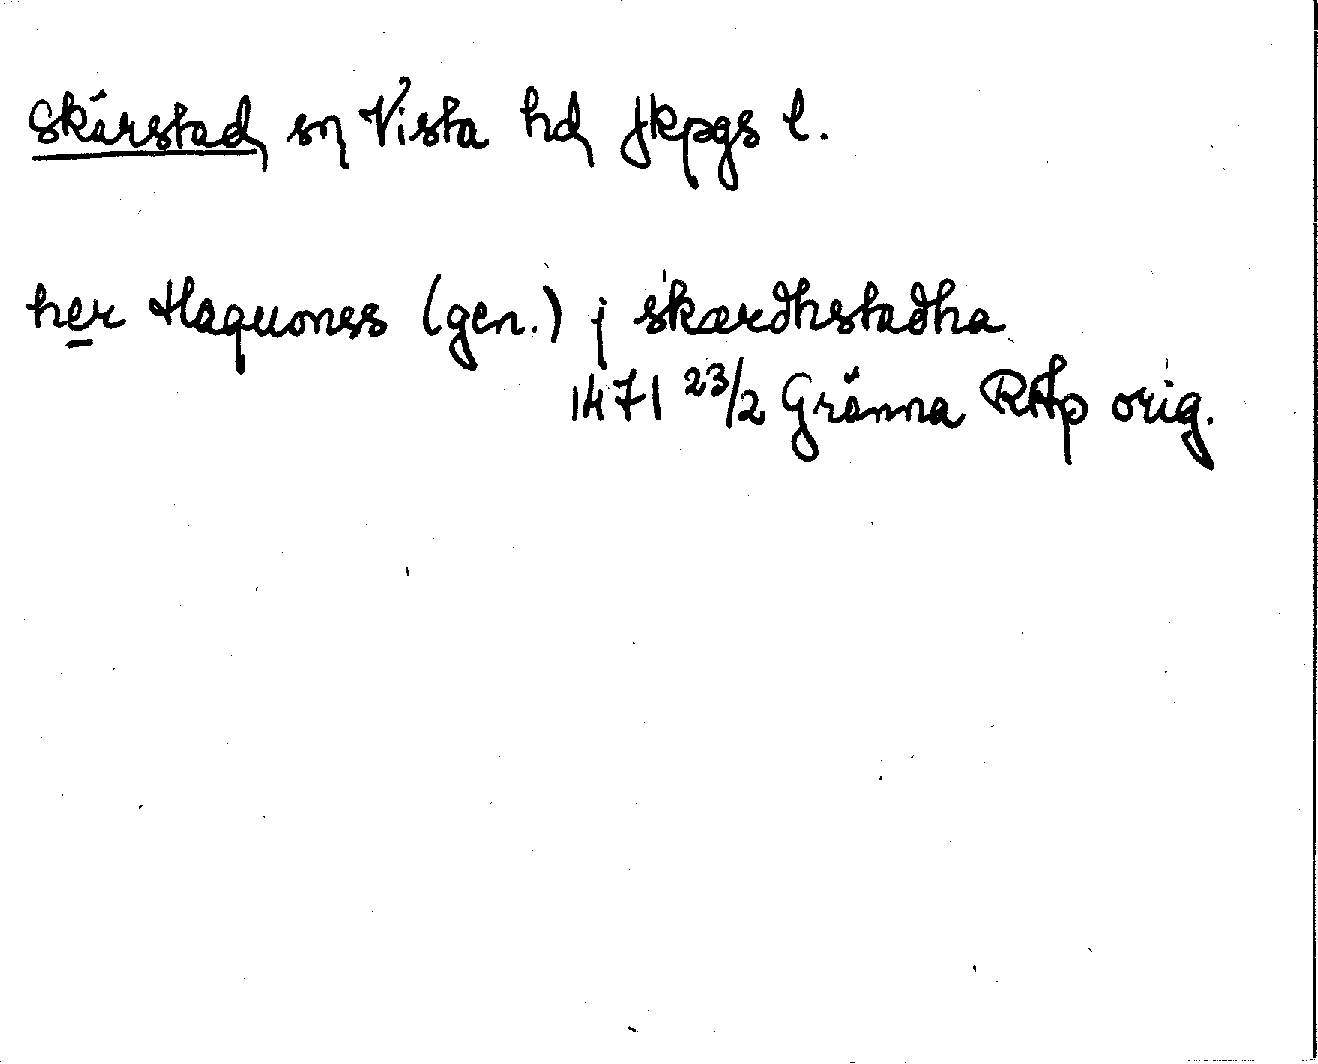 Skärstad sn Vista hd Jkpgs l.
her Haquonss (gen.) j skærdhstadha
1471 23/2 Gränna RAp orig.